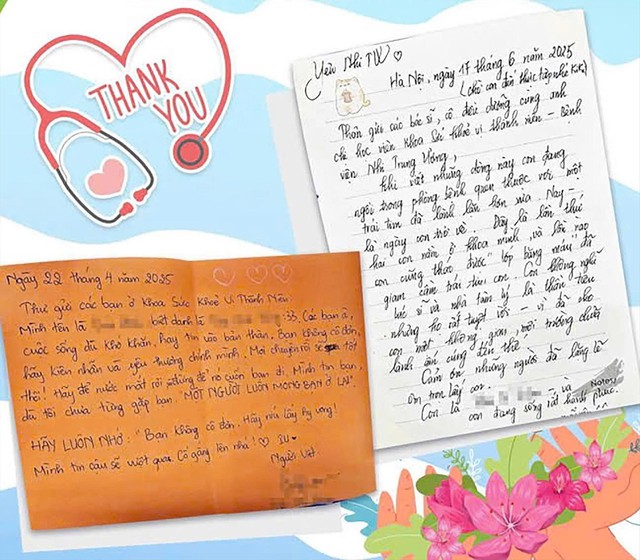 THANK
YOU
Yêu Nhi TW ♡
Hà Nội, ngày 17 tháng 6 năm 2025
Thân gửi các bác sĩ, cô điều dưỡng cùng anh
chị học viên khoa Sức khoẻ vị thành niên - Bệnh
viện Nhi Trung Ương,
Khi viết những dòng này con đang
ngồi trong phòng bệnh quen thuộc với một
trái tim đã lành lặn hơn xưa. Nay -
là ngày con trở về. Đây là lần thứ
hai con nằm ở khoa mình và lần nào
con cũng thấy được "lớp băng máu" đã
giam cầm trái tim con. Con không nghĩ
bác sĩ và nhà tâm lý là thần tiên
nhưng họ rất tuyệt vời - vì đã cho
con một không gian, môi trường chữa
lành ấm cúng đến thế.
Cảm ơn những người đã lắng lo
ôm trọn lấy con
Con là - và
con đang sống rất hạnh phúc.
Notes
Ngày 22 tháng 4 năm 2025
Thư gửi các bạn ở khoa Sức Khoẻ Vị Thành Niên
Mình tên là biệt danh là :33 Các bạn à,
cuộc sống dù khó khăn, hãy tin vào bản thân. Bạn không cô đơn,
hãy kiên nhẫn và yêu thương chính mình. Mọi chuyện rồi sẽ tốt
thôi! Hãy để nước mắt rơi, đừng để nó cuốn bạn đi. Mình tin bạn,
dù tôi chưa từng gặp bạn "MỘT NGƯỜI LUÔN MONG BẠN Ở LẠI"
HÃY LUÔN NHỚ: "Bạn không cô đơn. Hãy níu lấy hy vọng!
Mình tin cậu sẽ vượt qua. Cố gắng lên nhá! ♡ IU
Người viết